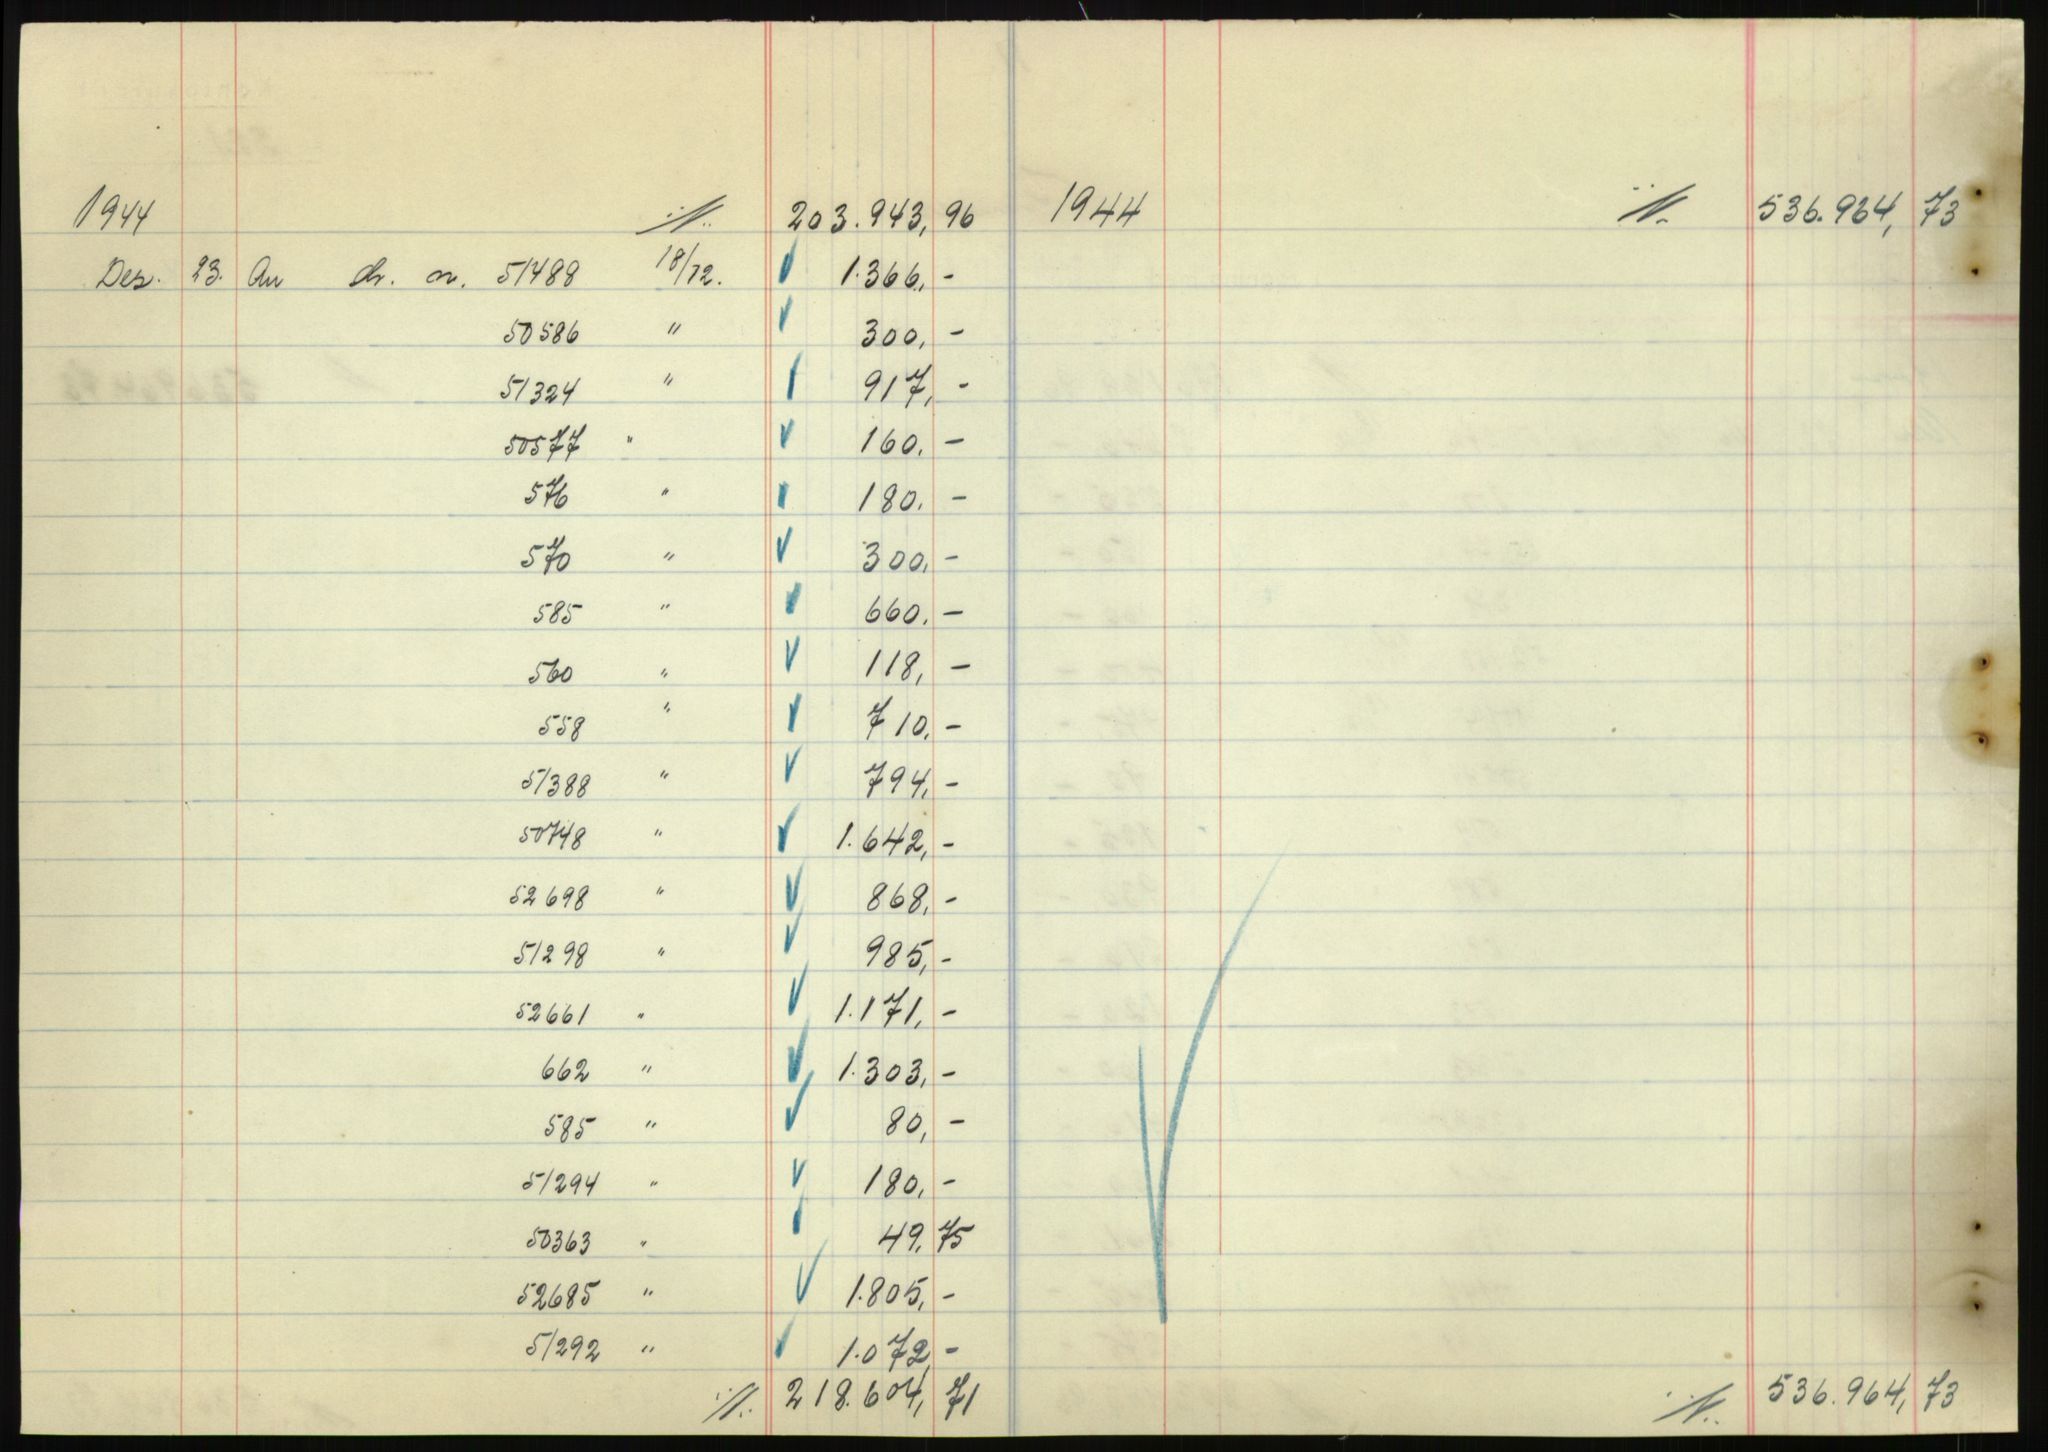 1944 ·/. 203.943,96 1944 ·/. 536.964,73
Dez. 23. An ch. n. 51488 18/12. 1.366,-
50586 " 300,-
51324 " 917,-
50577 " 160.-
576 " 180.-
570 " 300,-
585 " 660.-
560 " 118,-
558 " 710,-
51388 " 794,-
50748 " 1.642,-
52698 " 868,-
51298 " 985,-
52661 " 1.171,-
662 " 1.303,-
585 " 80,-
51294 " 180,-
50363 " 49,75
52685 " 1.805,-
51292 " 1.072,-
·/. 218.604,71 ·/. 536.964,73